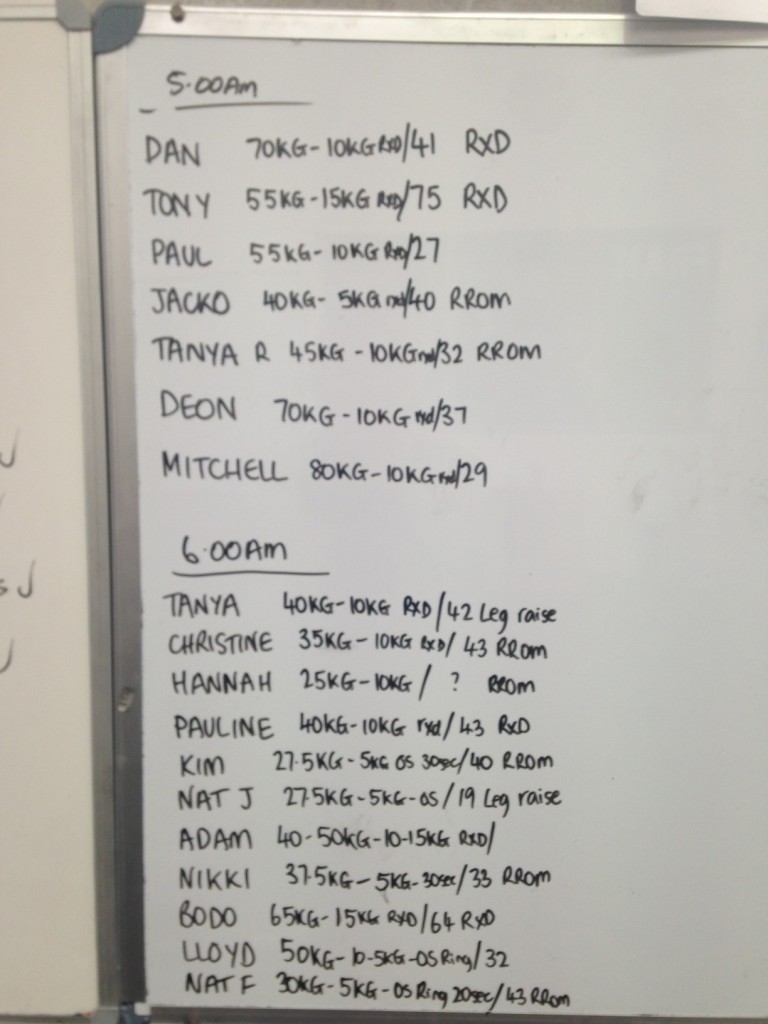 5.00AM
DAN 70KG-10KG RXD/41 RXD
TONY 55KG-15KG RXD/75 RXD
PAUL 55KG-10KG RXD/27
JACKO 40KG-5KG rxd/40 RROM
TANYA R 45KG-10KG rxd/32 RROM
DEON 70KG-10KG rxd/37
MITCHELL 80KG-10KG rxd/29
6.00AM
TANYA 40KG-10KG RXD/42 Leg raise
CHRISTINE 35KG-10KG RXD/43 RROM
HANNAH 25KG-10KG/? RROM
PAULINE 40KG-10KG rxd/43 RXD
KIM 27.5KG-5KG OS 30sec/40 RROM
NAT J 27.5KG-5KG-OS/19 Leg raise
ADAM 40-50KG-10-15KG RXD/
NIKKI 37.5KG-5KG-30sec/33 RROM
BODO 65KG-15KG RXD/64 RXD
LLOYD 50KG-10-5KG-OS Ring/32
NAT F 30KG-5KG-OS Ring 20sec/43 RROM